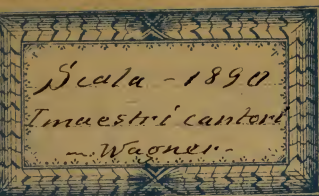 Scala - 1890
I maestri cantori
- Wagner -